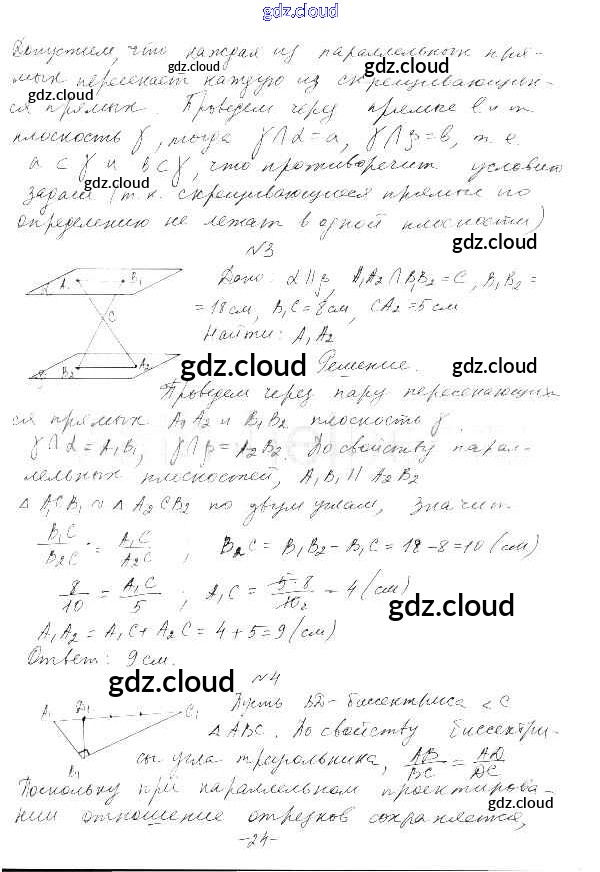 gdz.cloud
Допустим, что каждая из параллельных пря-
мых пересекает каждую из скрещивающих-
gdz.cloud
gdz.cloud
gdz.cloud
ся прямых. Проведем через прямые l и m
плоскость γ, тогда γ∩α=a, γ∩β=b, т. е.
gdz.cloud
a⊂γ и b⊂γ, что противоречит условию
gdz.cloud
задачи (т.к. скрещивающиеся прямые по
определению не лежат в одной плоскости)
gdz.cloud
№3
A₁ B₁ α C B₂ A₂
Дано: α∥β, A₁A₂∩B₁B₂=C, B₁B₂=
=18см, B₁C=8см, CA₂=5см
gdz.cloud
Найти: A₁A₂
gdz.cloud gdz.cloud
Решение.
Проведем через пару пересекающих-
ся прямых A₁A₂ и B₁B₂ плоскость γ.
gdz.cloud
γ∩α=A₁B₁, γ∩β=A₂B₂. По свойству парал-
лельных плоскостей, A₁B₁∥A₂B₂
△A₁CB₁∾△A₂CB₂ по двум углам, значит
gdz.cloud
B₁C/B₂C = A₁C/A₂C ; B₂C=B₁B₂-B₁C=18-8=10(см)
8/10 = A₁C/5 ; A₁C = 5·8/10₂ = 4(см)
gdz.cloud
A₁A₂=A₁C+A₂C=4+5=9(см)
Ответ: 9см.
gdz.cloud
№4
A₁ D₁ C₁ B₁
Пусть BD-биссектриса <C
△ABC. По свойству биссектри-
gdz.cloud
сы угла треугольника, AB/BC = AD/DC
gdz.cloud
Поскольку при параллельном проектирова-
gdz.cloud
нии отношение отрезков сохраняется,
-24-